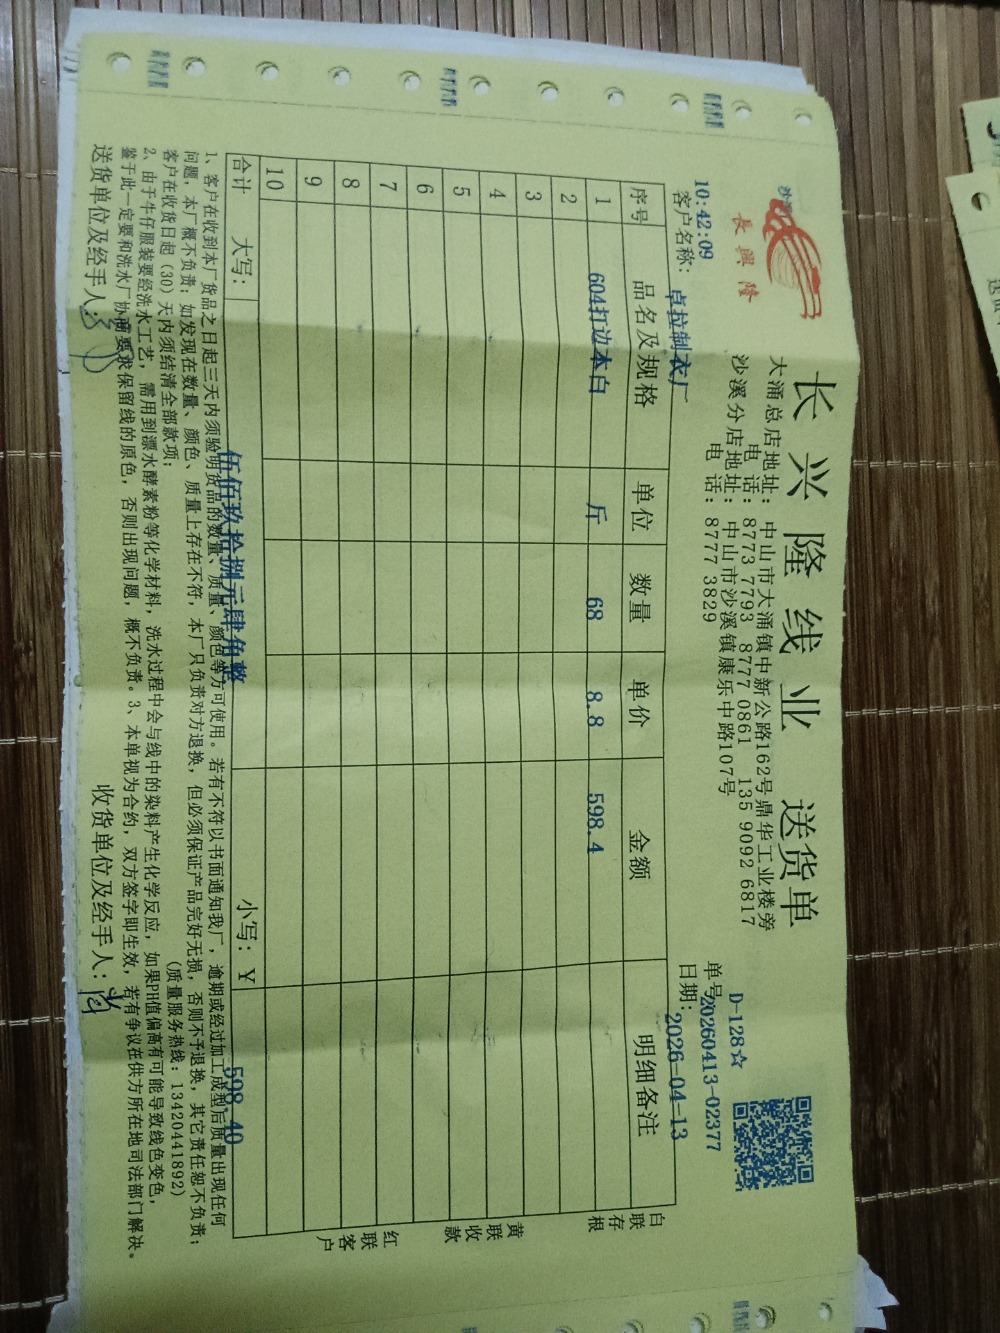 長興隆
长兴隆线业 送货单
大涌总店地址：中山市大涌镇中新公路162号鼎华工业楼旁
电话：8773 7793 8777 0861 135 9092 6817
沙溪分店地址：中山市沙溪镇康乐中路107号
电话：8777 3829
D-128☆
单号20260413-02377
日期：2026-04-13
10:42:09
客户名称：卓拉制衣厂
序号 品名及规格 单位 数量 单价 金额 明细备注
1 604打边本白 斤 68 8.8 598.4
2
3
4
5
6
7
8
9
10
合计 大写：伍佰玖拾捌元肆角整 小写：Y 598.40
白联存根
黄联收款
红联客户
1、客户在收到本厂货品之日起三天内须验明货品的数量、质量、颜色等方可使用。若有不符以书面通知我厂，逾期或经过加工成型后质量出现任何
问题，本厂概不负责；如发现在数量、颜色、质量上存在不符，本厂只负责对方退换，但必须保证产品完好无损，否则不予退换，其它责任恕不负责；
客户在收货日起（30）天内须结清全部款项； （质量服务热线：13420441892）
2、由于牛仔服装要经洗水工艺，需用到漂水酵素粉等化学材料，洗水过程中会与线中的染料产生化学反应，如果PH值偏高有可能导致线色变色，
鉴于此一定要和洗水厂协商要求保留线的原色，否则出现问题，概不负责。3、本单视为合约，双方签字即生效，若有争议在供方所在地司法部门解决。
送货单位及经手人： 收货单位及经手人：